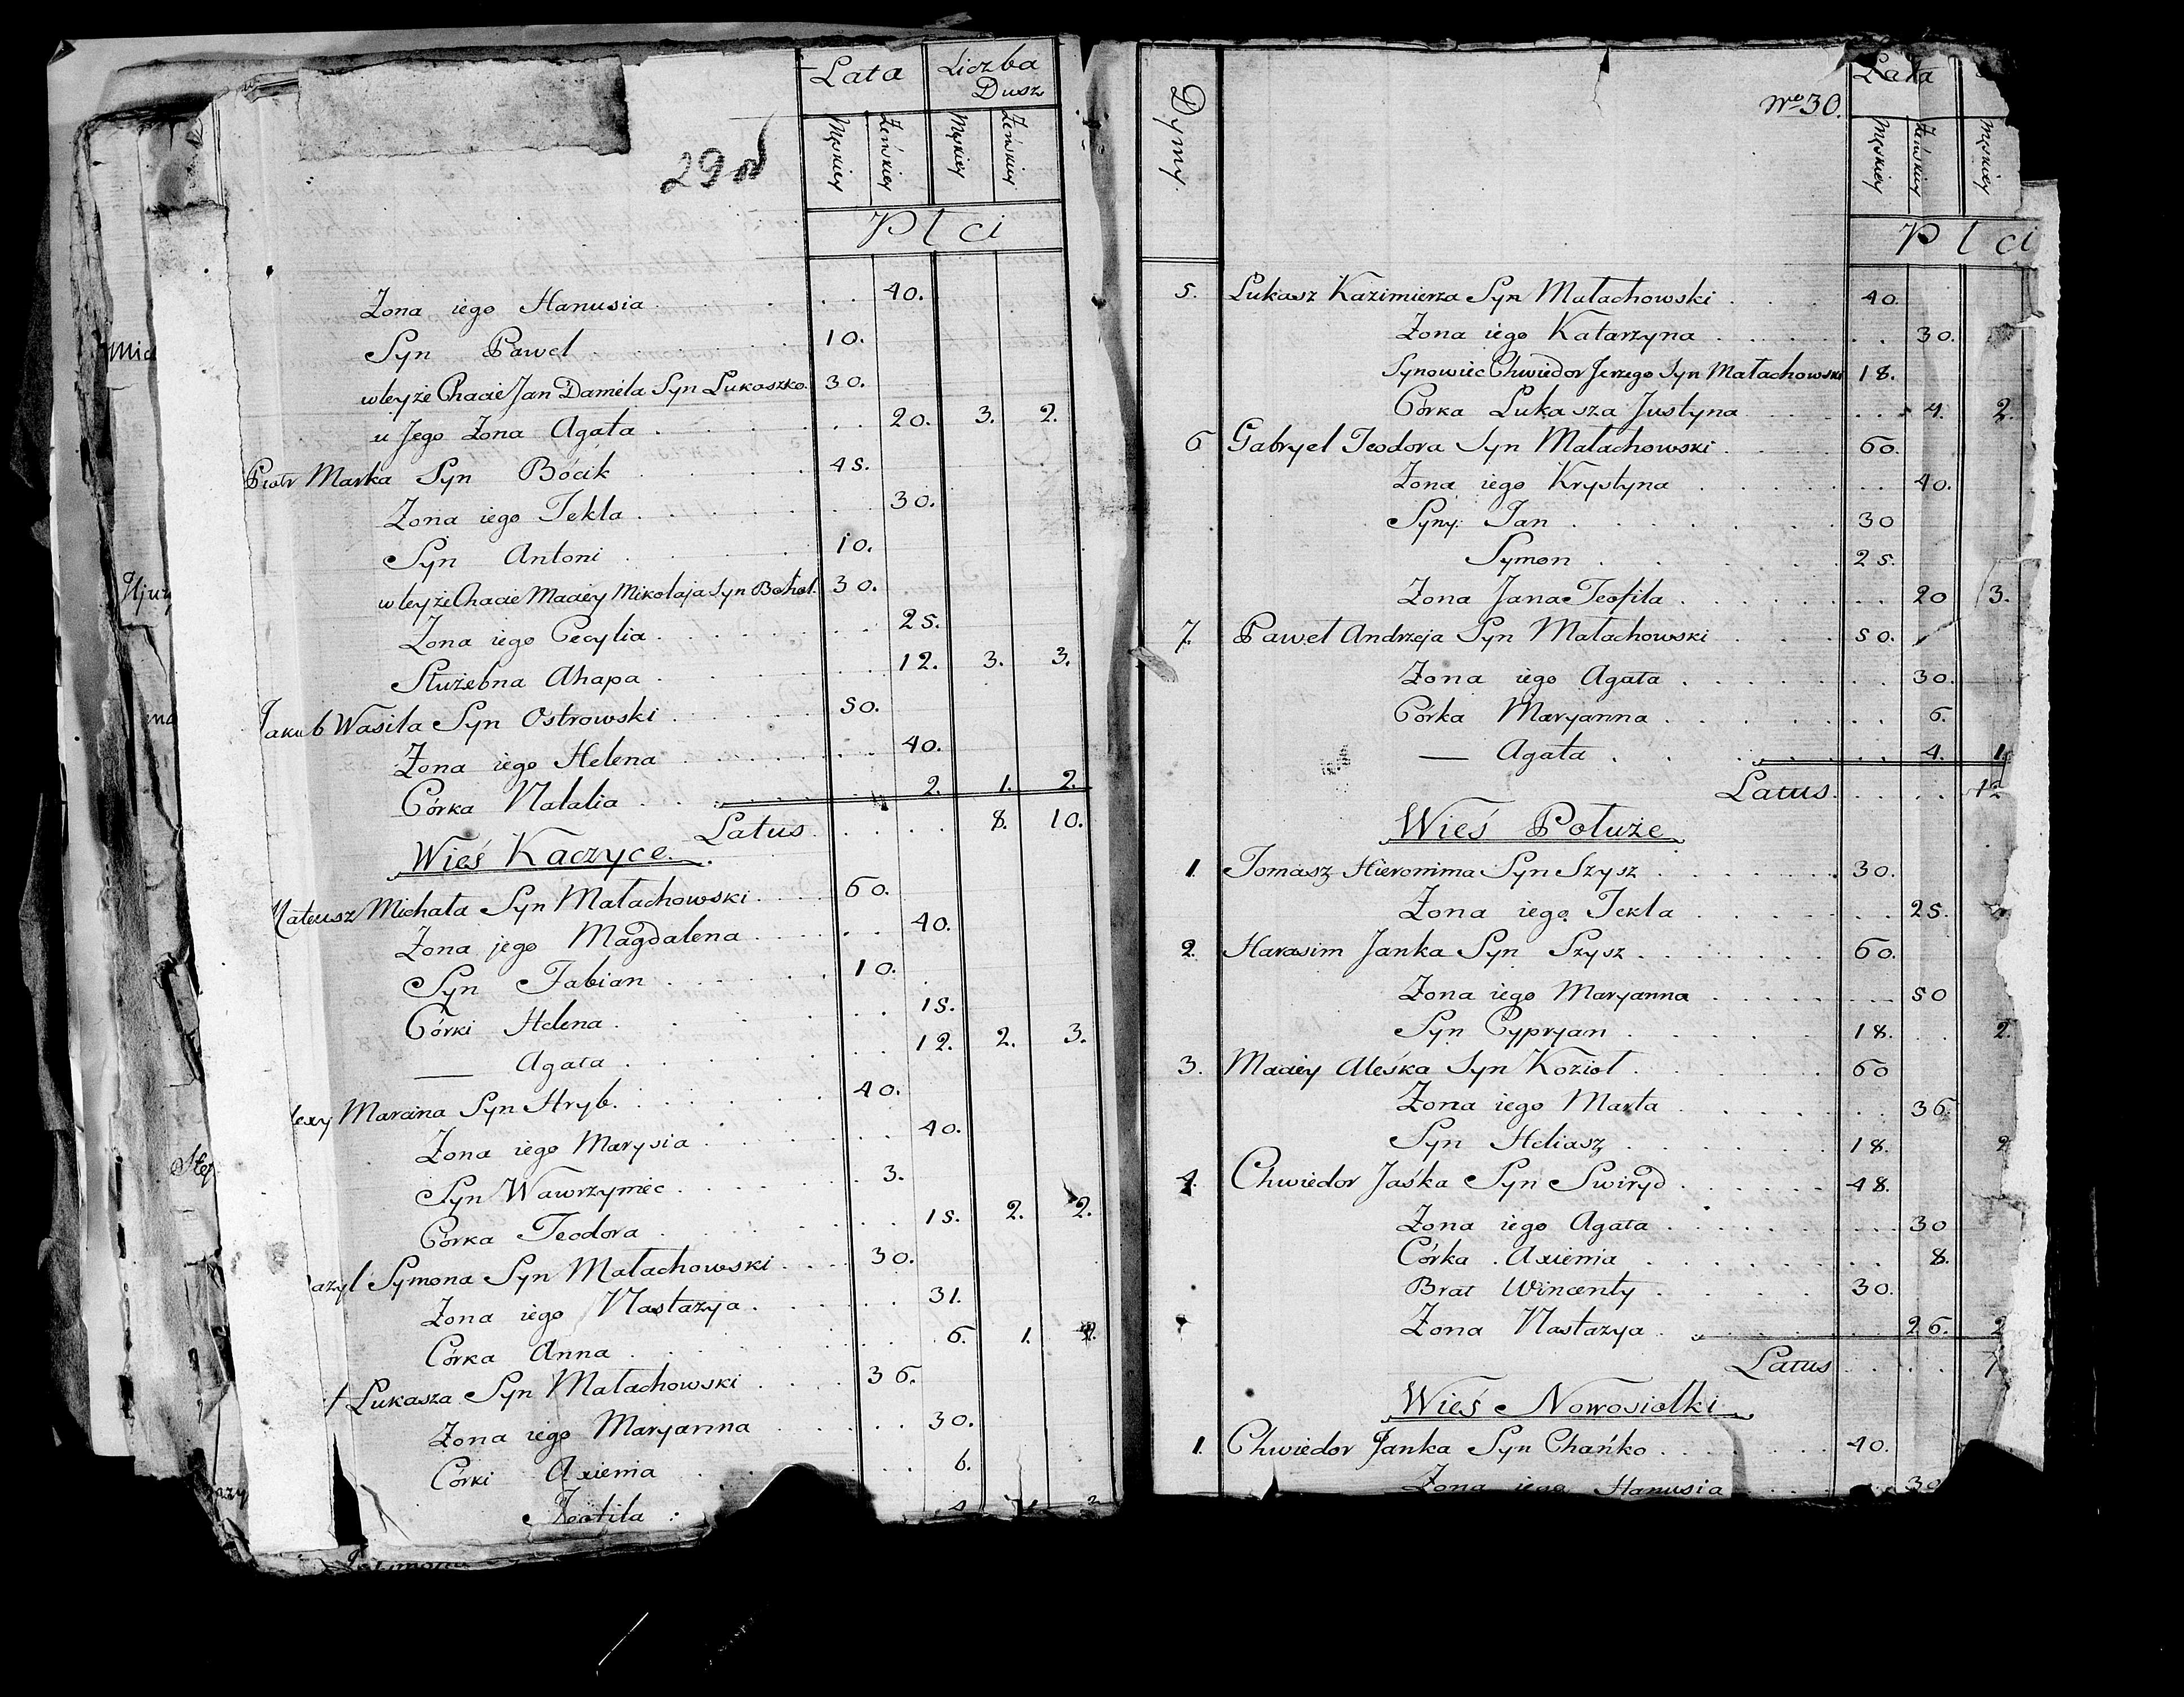 Lata Liczba Dusz
Męskiey Żeńskiey Męskiey Żeńskiey
29
Płci
Żona iego Hanusia . . . 40.
Syn Paweł . . . 10.
w teyże Chacie Jan Daniela Syn Lukaszko. 30.
u Jego Żona Agata . . . 20. 3. 2.
Piotr Marka Syn Bócik . . . 45.
Żona iego Tekla . . . 30.
Syn Antoni . . . 10.
w teyże Chacie Maciey Mikołaja Syn 30.
Żona iego Cecylia . . . 25.
Służebna Ahapa . . . 12. 3. 3.
Jakub Wasila Syn Ostrowski . . . 50.
Żona iego Helena . . . 40.
Córka Natalia . . . 2. 1. 2.
Latus . . . 8. 10.
Wieś Kaczyce.
Mateusz Michała Syn Małachowski . . . 60.
Żona jego Magdalena . . . 40.
Syn Fabian . . . 10.
Córki Helena . . . 15.
— Agata . . . 12. 2. 3.
lexy Marcina Syn Hryb. . . . 40.
Żona iego Marysia . . . 40.
Syn Wawrzyniec . . . 3.
Córka Teodora . . . 15. 2. 2.
azyl Symona Syn Małachowski . . . 30.
Żona iego Nastazya . . . 31.
Córka Anna . . . 6. 1. 2.
Łukasza Syn Małachowski . . . 36.
Żona iego Maryanna . . . 30.
Córki Axienia . . . 6.
Teofila
Dymy.
No 30.
Lata
Męskiey Żeńskiey Męskiey
Płci
5. Łukasz Kazimierza Syn Małachowski . . . 40.
Żona iego Katarzyna . . . 30.
Synowiec Chwiedor Jerzego Syn Małachowski 18.
Córka Łukasza Justyna . . . 4. 2.
6 Gabryel Teodora Syn Małachowski . . . 60.
Żona iego Krystyna . . . 40.
Syny: Jan . . . 30
Symon . . . 25.
Żona Jana Teofila . . . 20 3.
7. Paweł Andrzeja Syn Małachowski . . . 50.
Żona iego Agata . . . 30.
Córka Maryanna . . . 6.
— Agata . . . 4. 1.
Latus . . .
Wieś Połuże
1 Tomasz Hieronima Syn Szysz . . . 30.
Żona iego Tekla . . . 25.
2. Harasim Janka Syn Szysz . . . 60.
Żona iego Maryanna . . . 50
Syn Cypryan . . . 18. 2.
3. Maciey Aleśka Syn Kozioł . . . 60
Żona iego Marta . . . 36.
Syn Heliasz . . . 18. 2
4. Chwiedor Jaśka Syn Swiryd . . . 48.
Żona iego Agata . . . 30
Córka Axienia . . . 8.
Brat Wincenty . . . 30.
Żona Nastazya . . . 26. 2
Latus . . . 7
Wieś Nowosiołki
1. Chwiedor Janka Syn Chańko . . . 40.
Żona iego Hanusia . . . 30